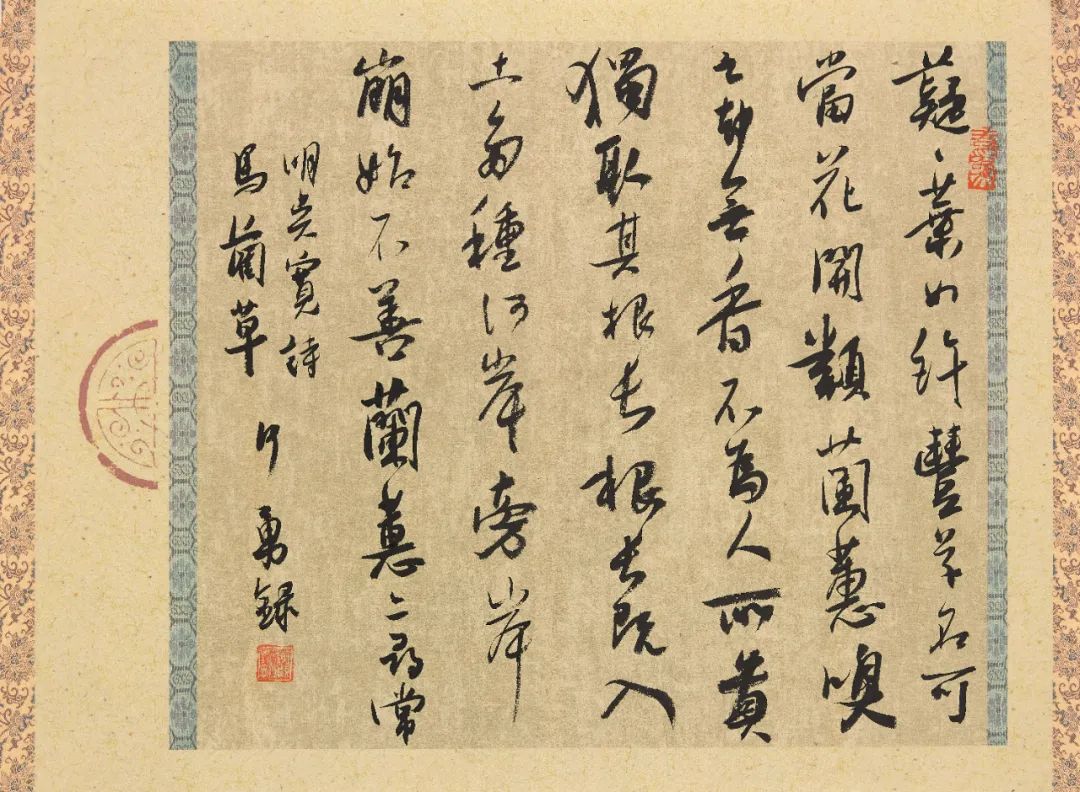 薿〻葉如許豐草名可
當花開類蘭蕙嗅
之却無香不為人所貴
獨取其根長根長既入
土多種河岸旁岸
崩始不善蘭蕙亦尋常
明吴寬詩
馬藺草
勇錄